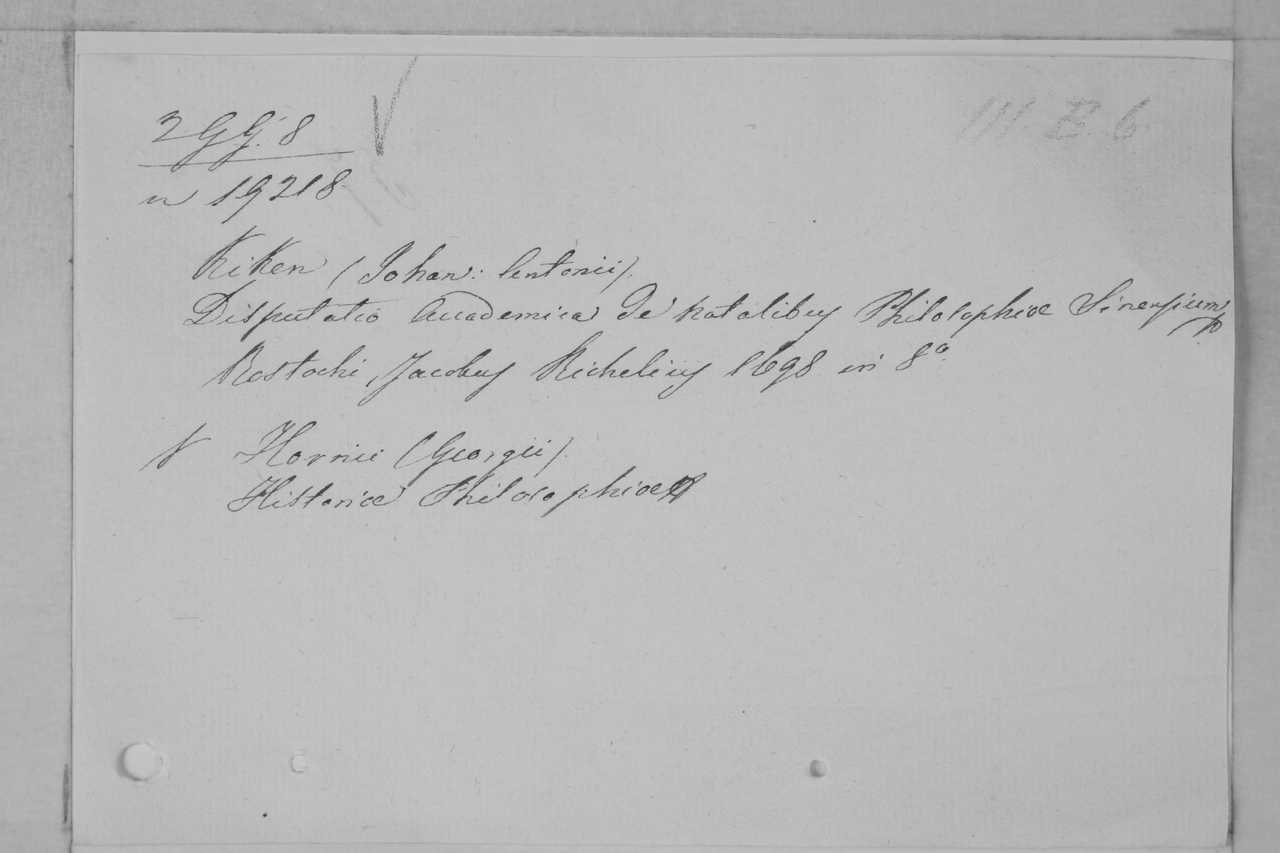 2 GG. 8
III. B. 6
n 19218
Kiken (Johan: Centonii).
Disputatio Academica De natalibus Philosophiæ Sinensium
Rostochi, Jacobus Richelius 1698 in 8º.
V Hornii (Georgii).
Historiæ Philosophicæ